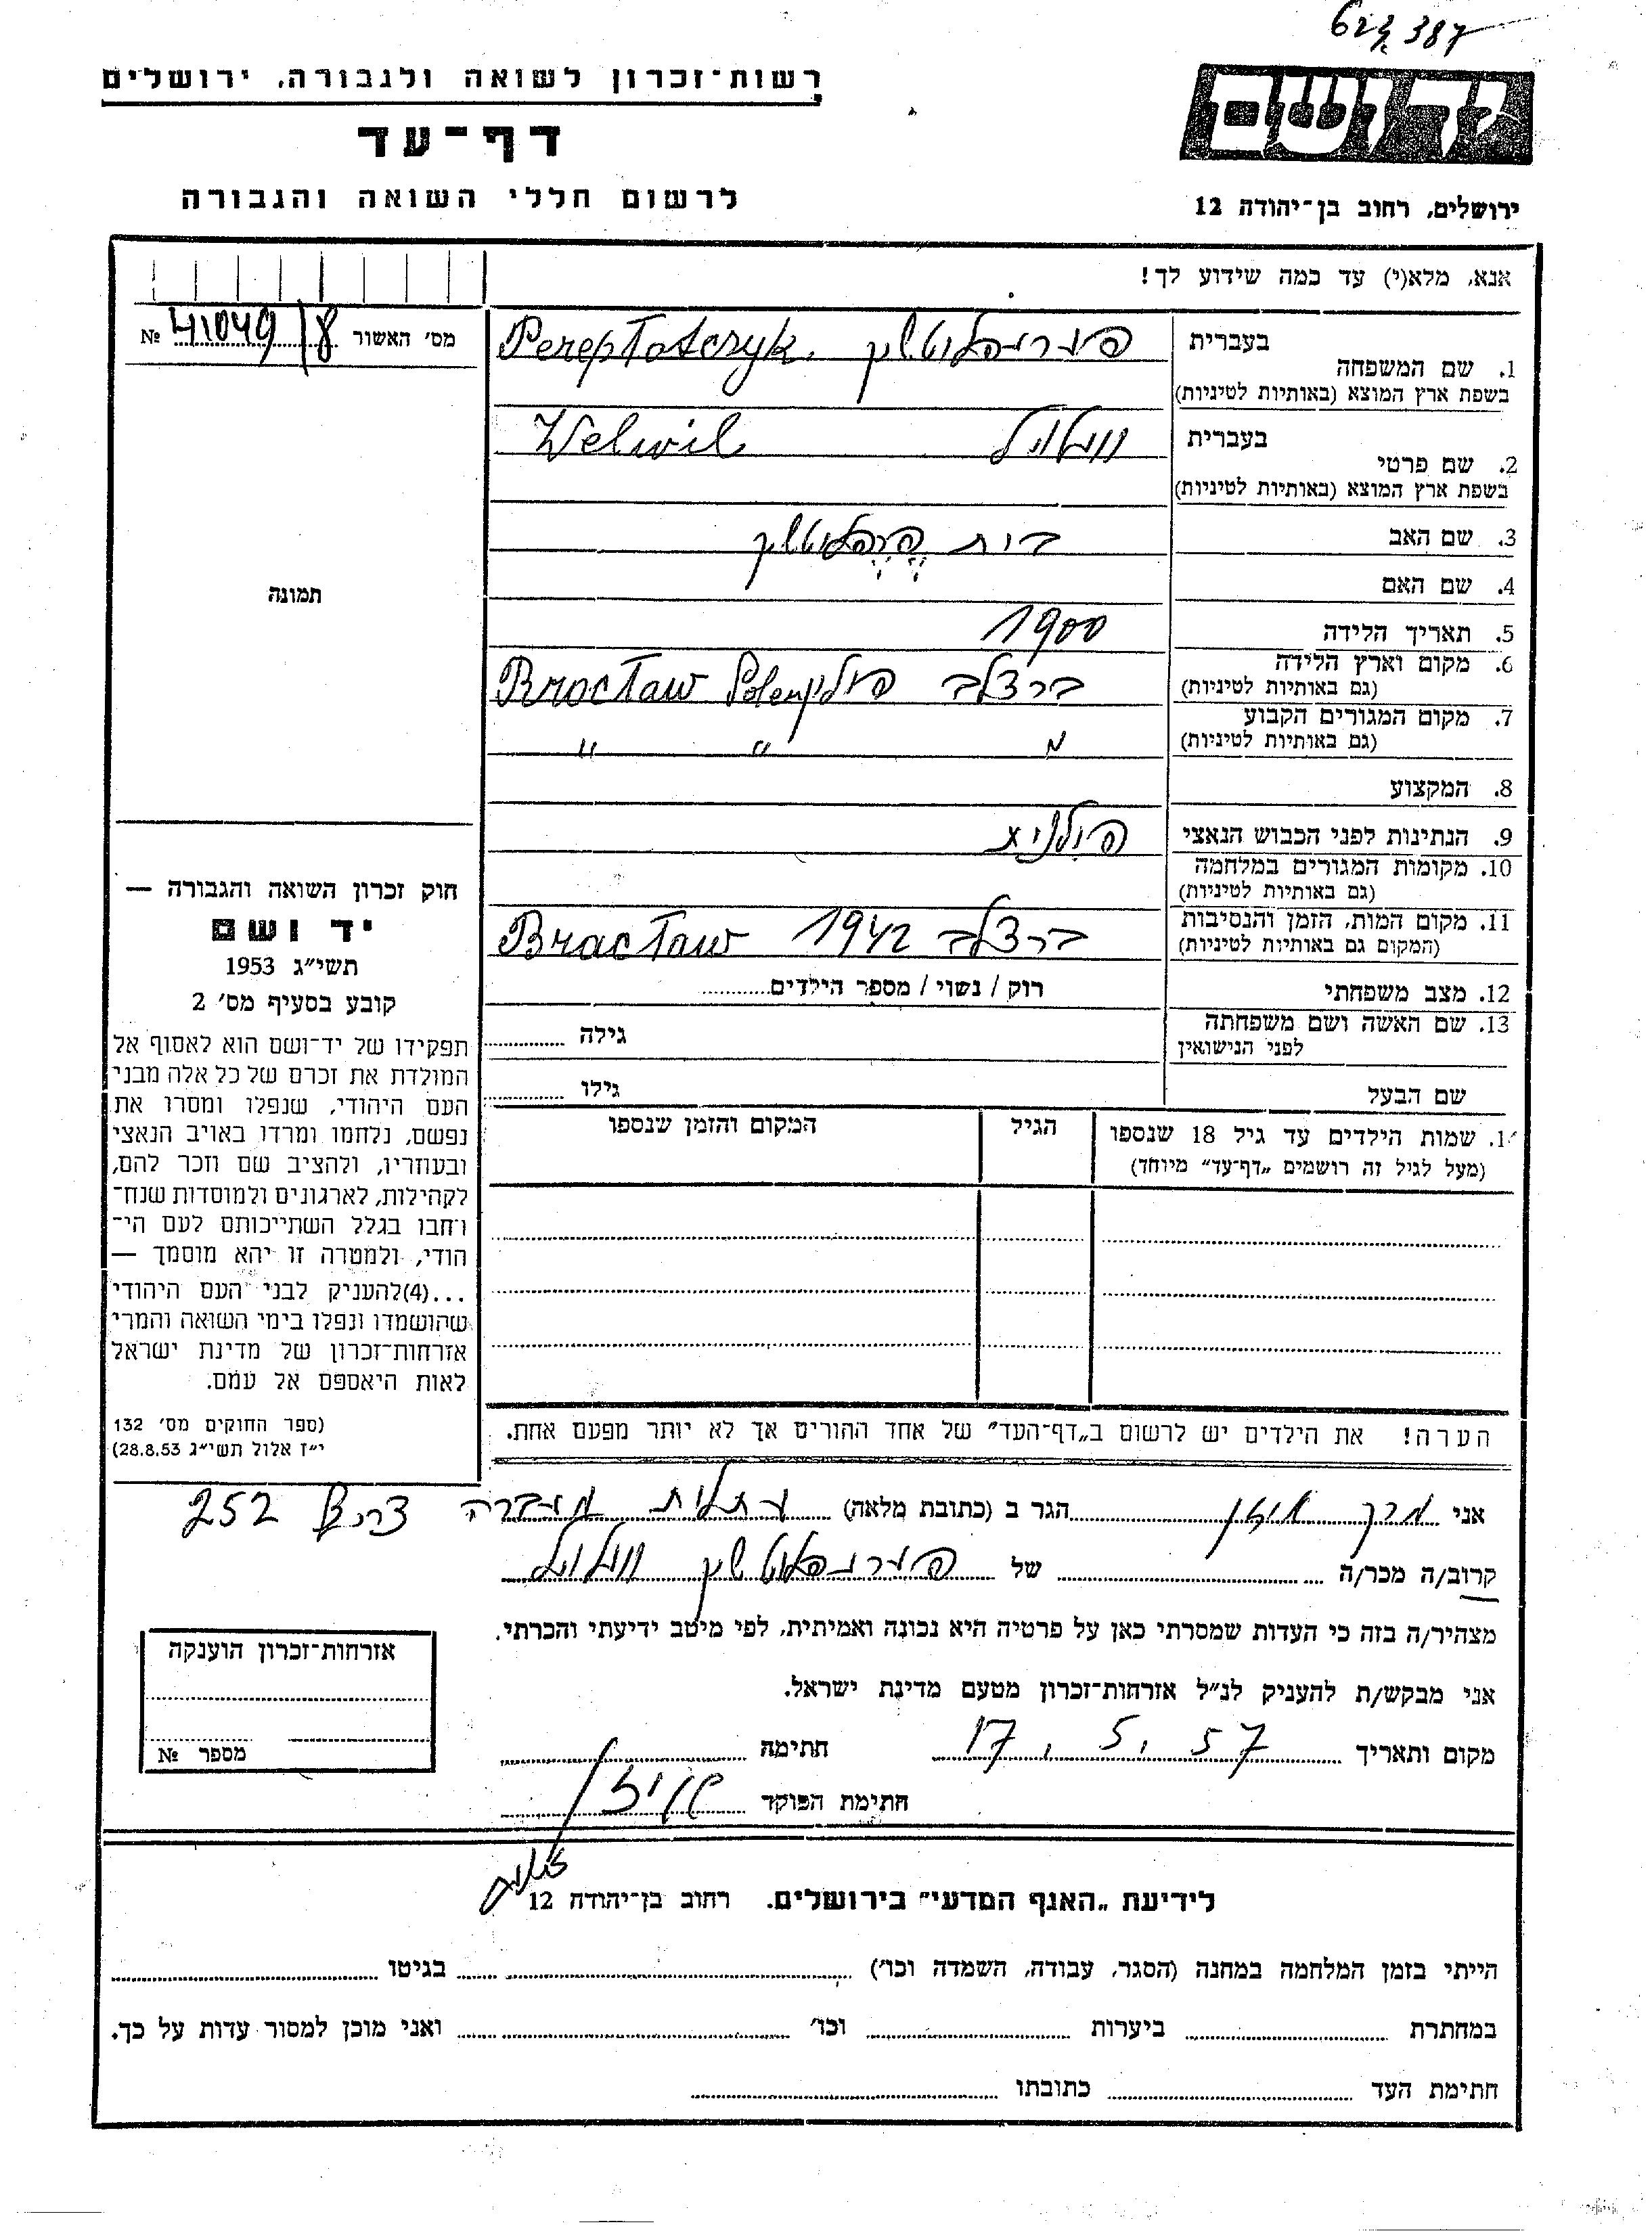 623 387
רשות־זכרון לשואה ולגבורה, ירושלים
יד ושם
דף־עד
לרשום חללי השואה והגבורה
ירושלים, רחוב בן־יהודה 12
אנא, מלא(י) עד כמה שידוע לך!
מס׳ האשור 41049/8 №
1. שם המשפחה בעברית
Pereptotczyk
בשפת ארץ המוצא (באותיות לטיניות)
2. שם פרטי בעברית וועלוויל Welwil
בשפת ארץ המוצא (באותיות לטיניות)
3. שם האב
4. שם האם
תמונה
5. תאריך הלידה 1900
6. מקום וארץ הלידה ברצלב Bracław
(גם באותיות לטיניות)
7. מקום המגורים הקבוע " " "
(גם באותיות לטיניות)
8. המקצוע
9. הנתינות לפני הכבוש הנאצי פולנית
10. מקומות המגורים במלחמה
(גם באותיות לטיניות)
11. מקום המות, הזמן והנסיבות ברצלב 1942 Bracław
(המקום גם באותיות לטיניות)
12. מצב משפחתי רוק / נשוי / מספר הילדים
13. שם האשה ושם משפחתה גילה
לפני הנישואין
שם הבעל גילו
1. שמות הילדים עד גיל 18 שנספו הגיל המקום והזמן שנספו
(מעל לגיל זה רושמים „דף־עד״ מיוחד)
הערה! את הילדים יש לרשום ב„דף־העד״ של אחד ההורים אך לא יותר מפעם אחת.
חוק זכרון השואה והגבורה —
יד ושם
תשי״ג 1953
קובע בסעיף מס׳ 2
תפקידו של יד־ושם הוא לאסוף אל
המולדת את זכרם של כל אלה מבני
העם היהודי, שנפלו ומסרו את
נפשם, נלחמו ומרדו באויב הנאצי
ובעוזריו, ולהציב שם וזכר להם,
לקהילות, לארגונים ולמוסדות שנח־
רחבו בגלל השתייכותם לעם הי־
הודי, ולמטרה זו יהא מוסמך —
...(4)להעניק לבני העם היהודי
שהושמדו ונפלו בימי השואה והמרי
אזרחות־זכרון של מדינת ישראל
לאות היאספם אל עמם.
(ספר החוקים מס׳ 132
י״ז אלול תשי״ג 28.8.53)
אני הגר ב (כתובת מלאה) עתלית צריף 252
קרוב/ה מכר/ה של
מצהיר/ה בזה כי העדות שמסרתי כאן על פרטיה היא נכונה ואמיתית, לפי מיטב ידיעתי והכרתי.
אני מבקש/ת להעניק לנ״ל אזרחות־זכרון מטעם מדינת ישראל.
מקום ותאריך 17, 5, 57 חתימה
חתימת הפוקד
אזרחות־זכרון הוענקה
מספר №
לידיעת „האגף המדעי״ בירושלים. רחוב בן־יהודה 12
הייתי בזמן המלחמה במחנה (הסגר, עבודה, השמדה וכו׳) בגיטו
במחתרת ביערות וכו׳ ואני מוכן למסור עדות על כך.
חתימת העד כתובתו